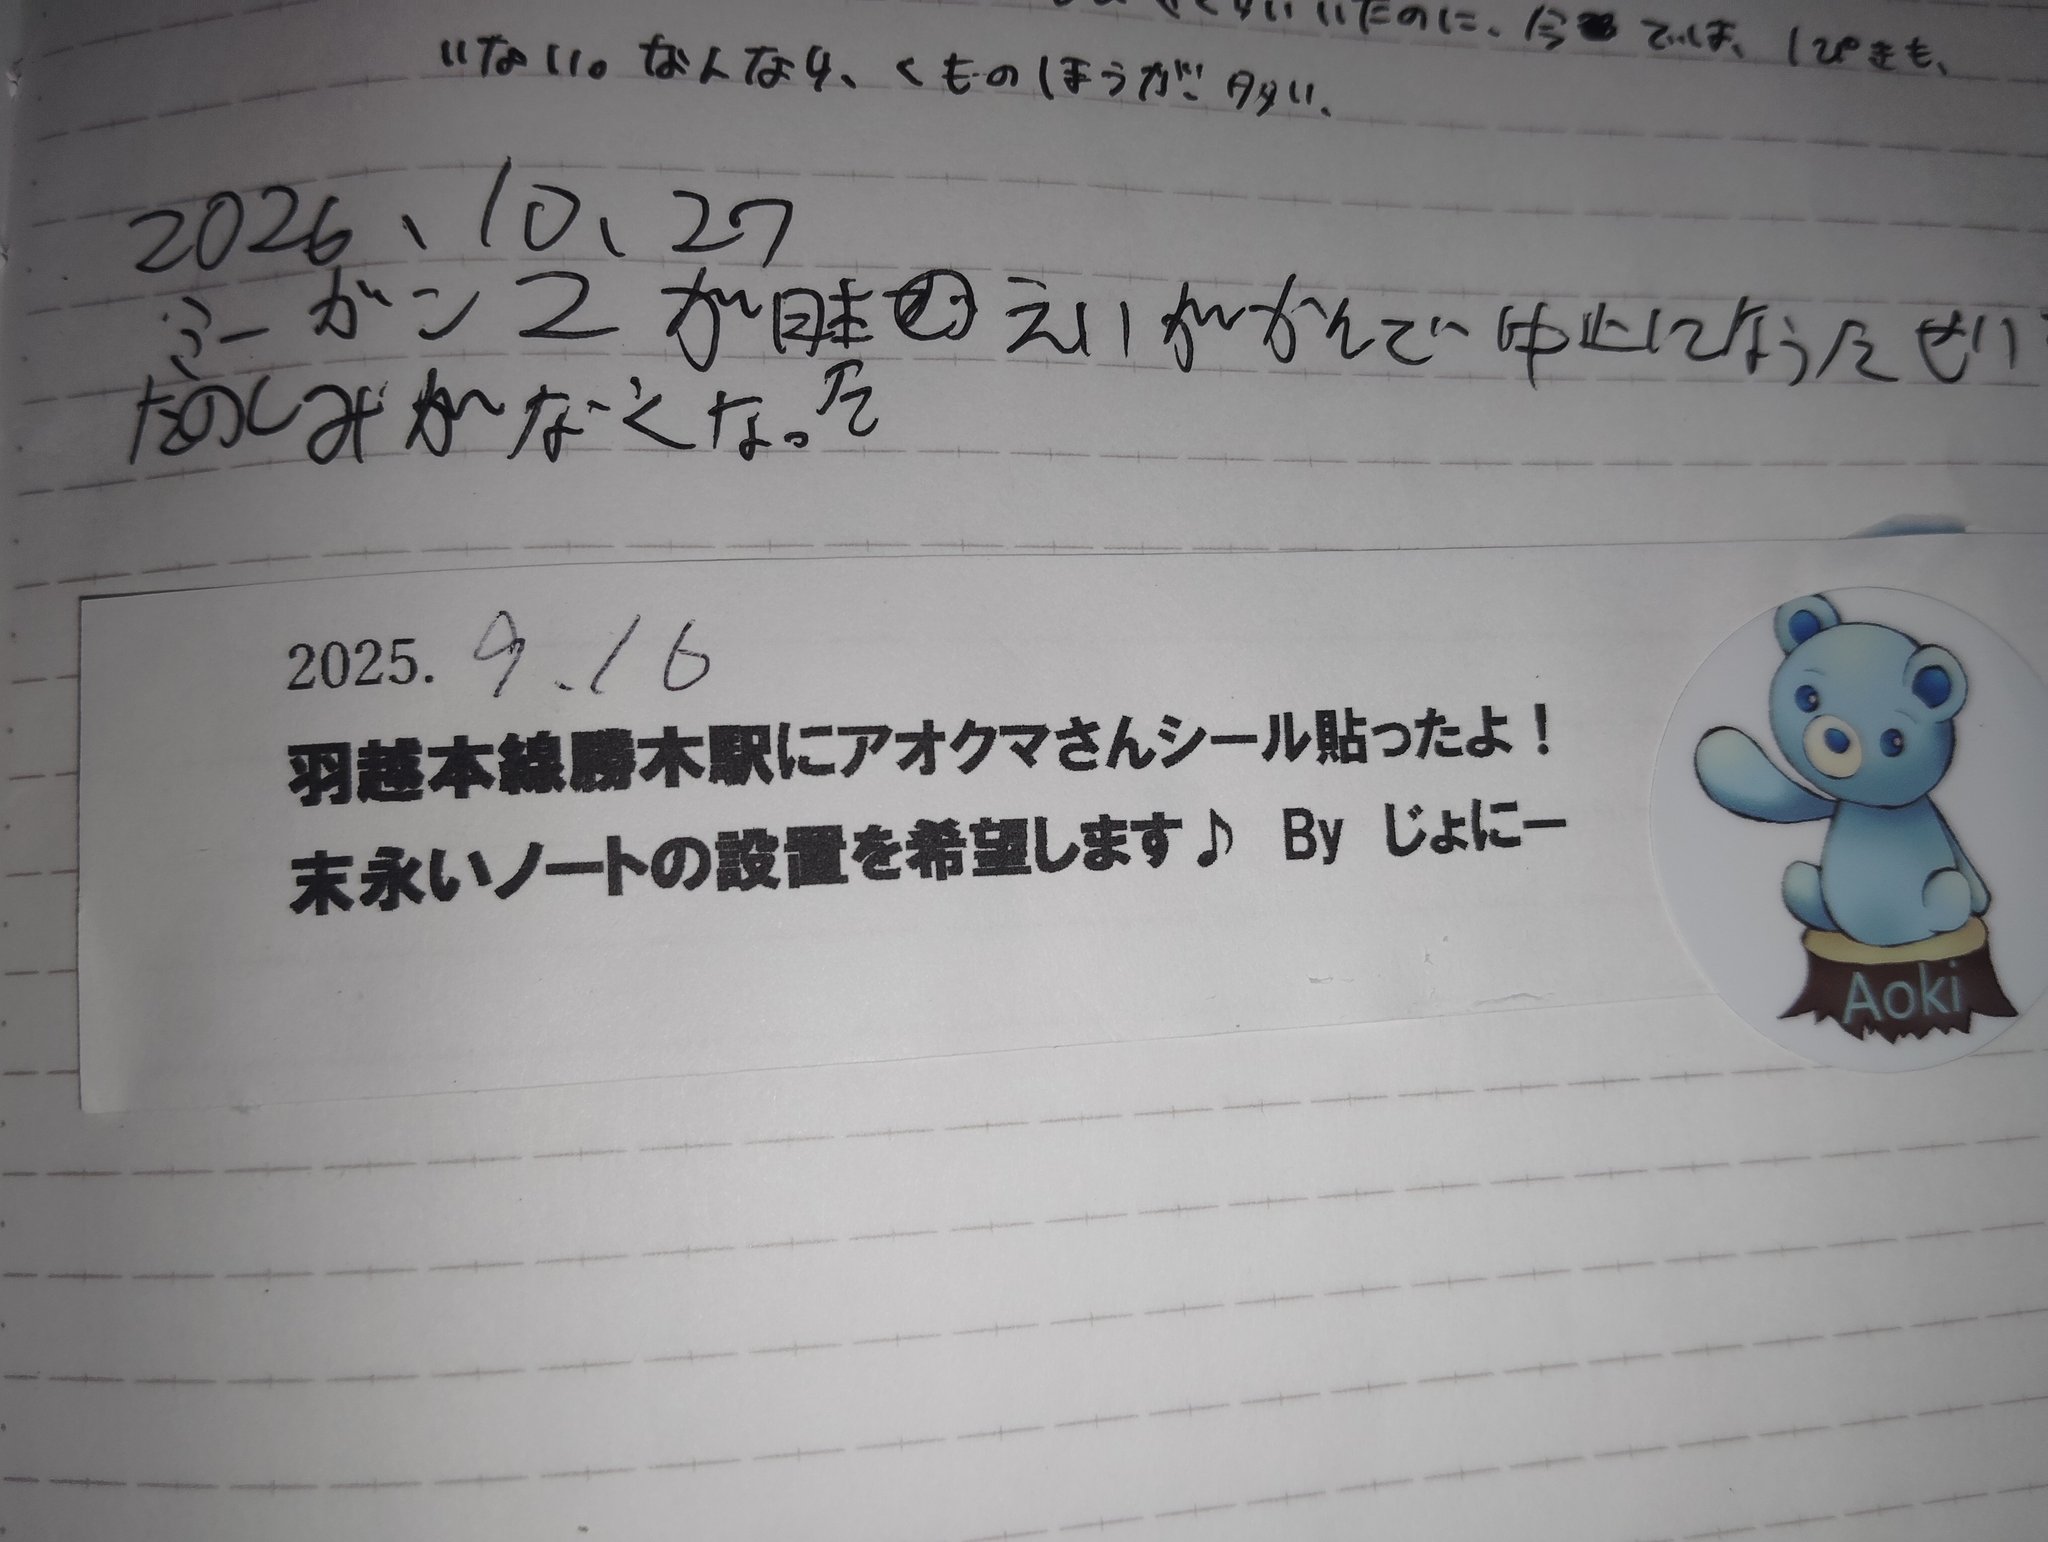 いたのに、今では、1ぴきも、
いない。なんなら、くものほうが多い。
2026、10、27
ミーガン2が日本のえいがかんで中止になったせいで
たのしみがなくなった
2025. 9.16
羽越本線勝木駅にアオクマさんシール貼ったよ！
末永いノートの設置を希望します♪ By じょにー
Aoki